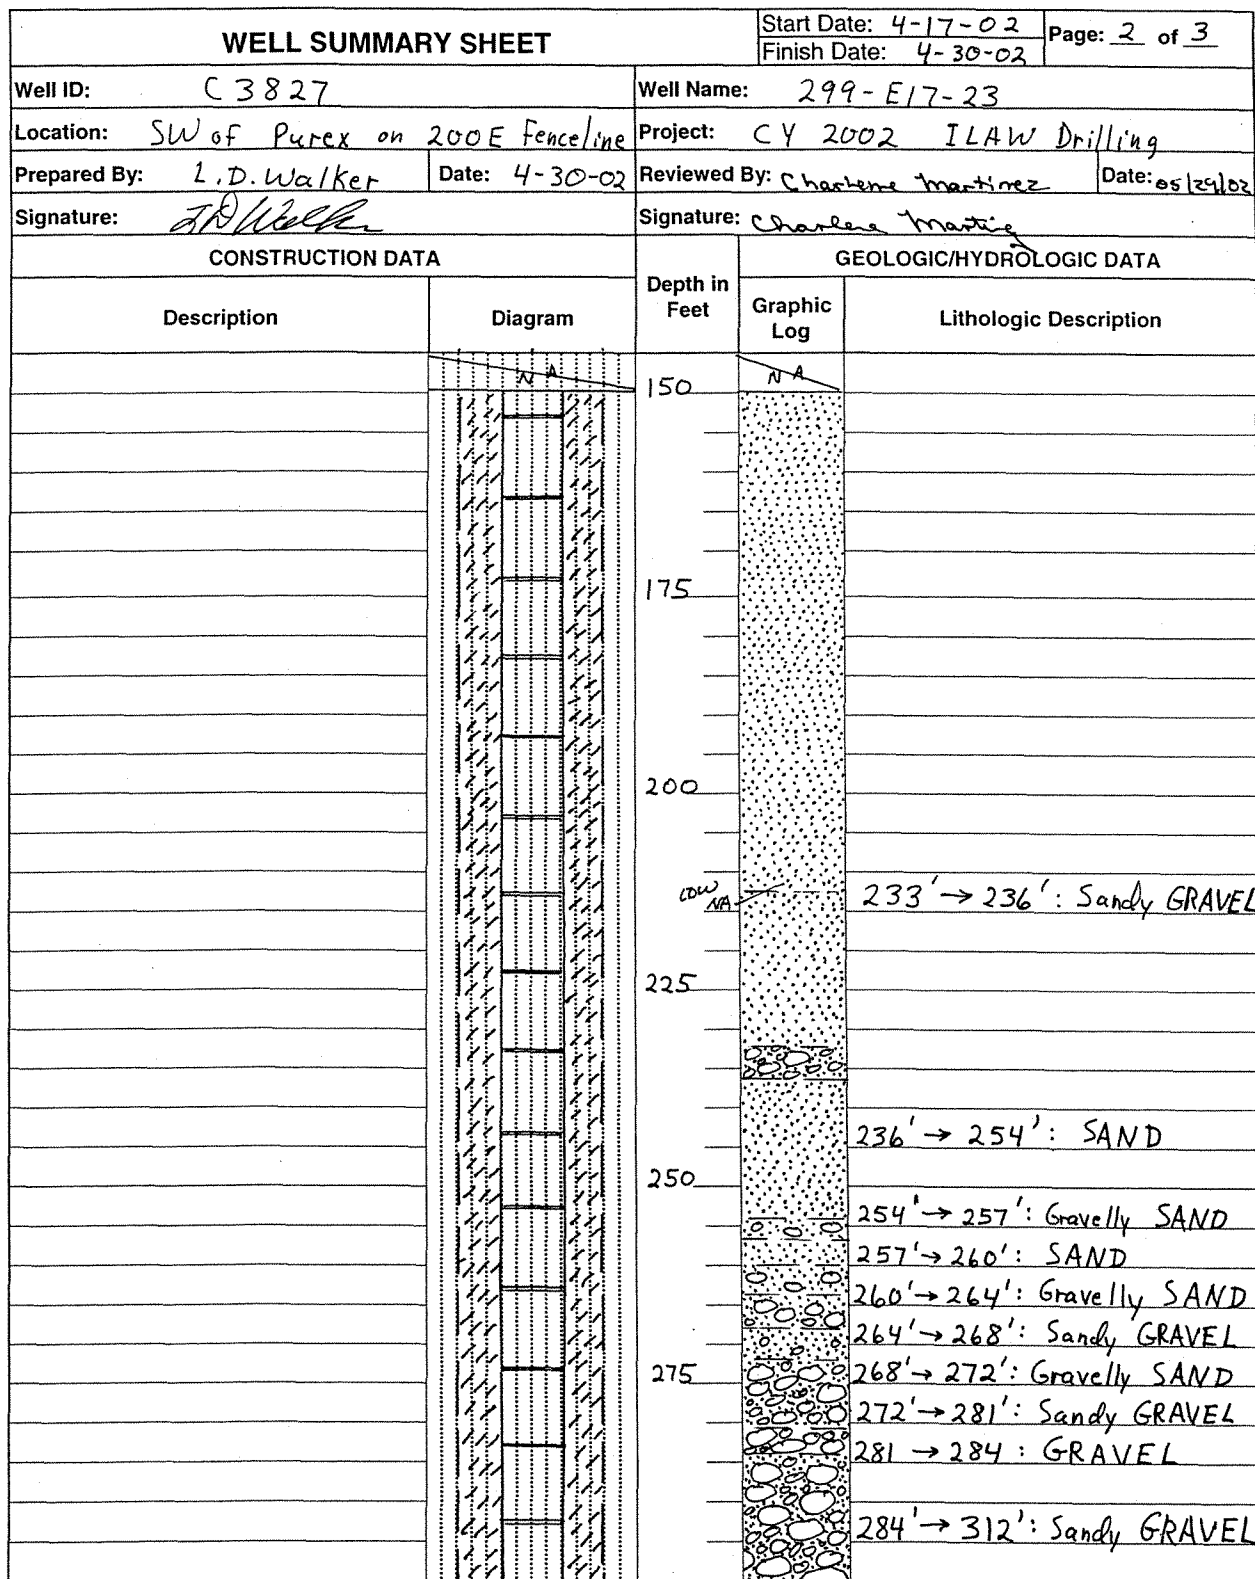 WELL SUMMARY SHEET
Start Date: 4-17-02
Finish Date: 4-30-02
Page: 2 of 3
Well ID: C3827
Well Name: 299-E17-23
Location: SW of Purex on 200E Fenceline
Project: CY 2002 ILAW Drilling
Prepared By: L.D. Walker
Date: 4-30-02
Reviewed By: Charlene Martinez
Date: 05/29/02
Signature: LD Walker
Signature: Charlene Martinez
CONSTRUCTION DATA
Depth in Feet
GEOLOGIC/HYDROLOGIC DATA
Description
Diagram
Graphic Log
Lithologic Description
NA
150
NA
175
200
LDW NA
233' → 236': Sandy GRAVEL
225
236' → 254': SAND
250
254' → 257': Gravelly SAND
257' → 260': SAND
260' → 264': Gravelly SAND
264' → 268': Sandy GRAVEL
275
268' → 272': Gravelly SAND
272' → 281': Sandy GRAVEL
281 → 284 : GRAVEL
284' → 312': Sandy GRAVEL